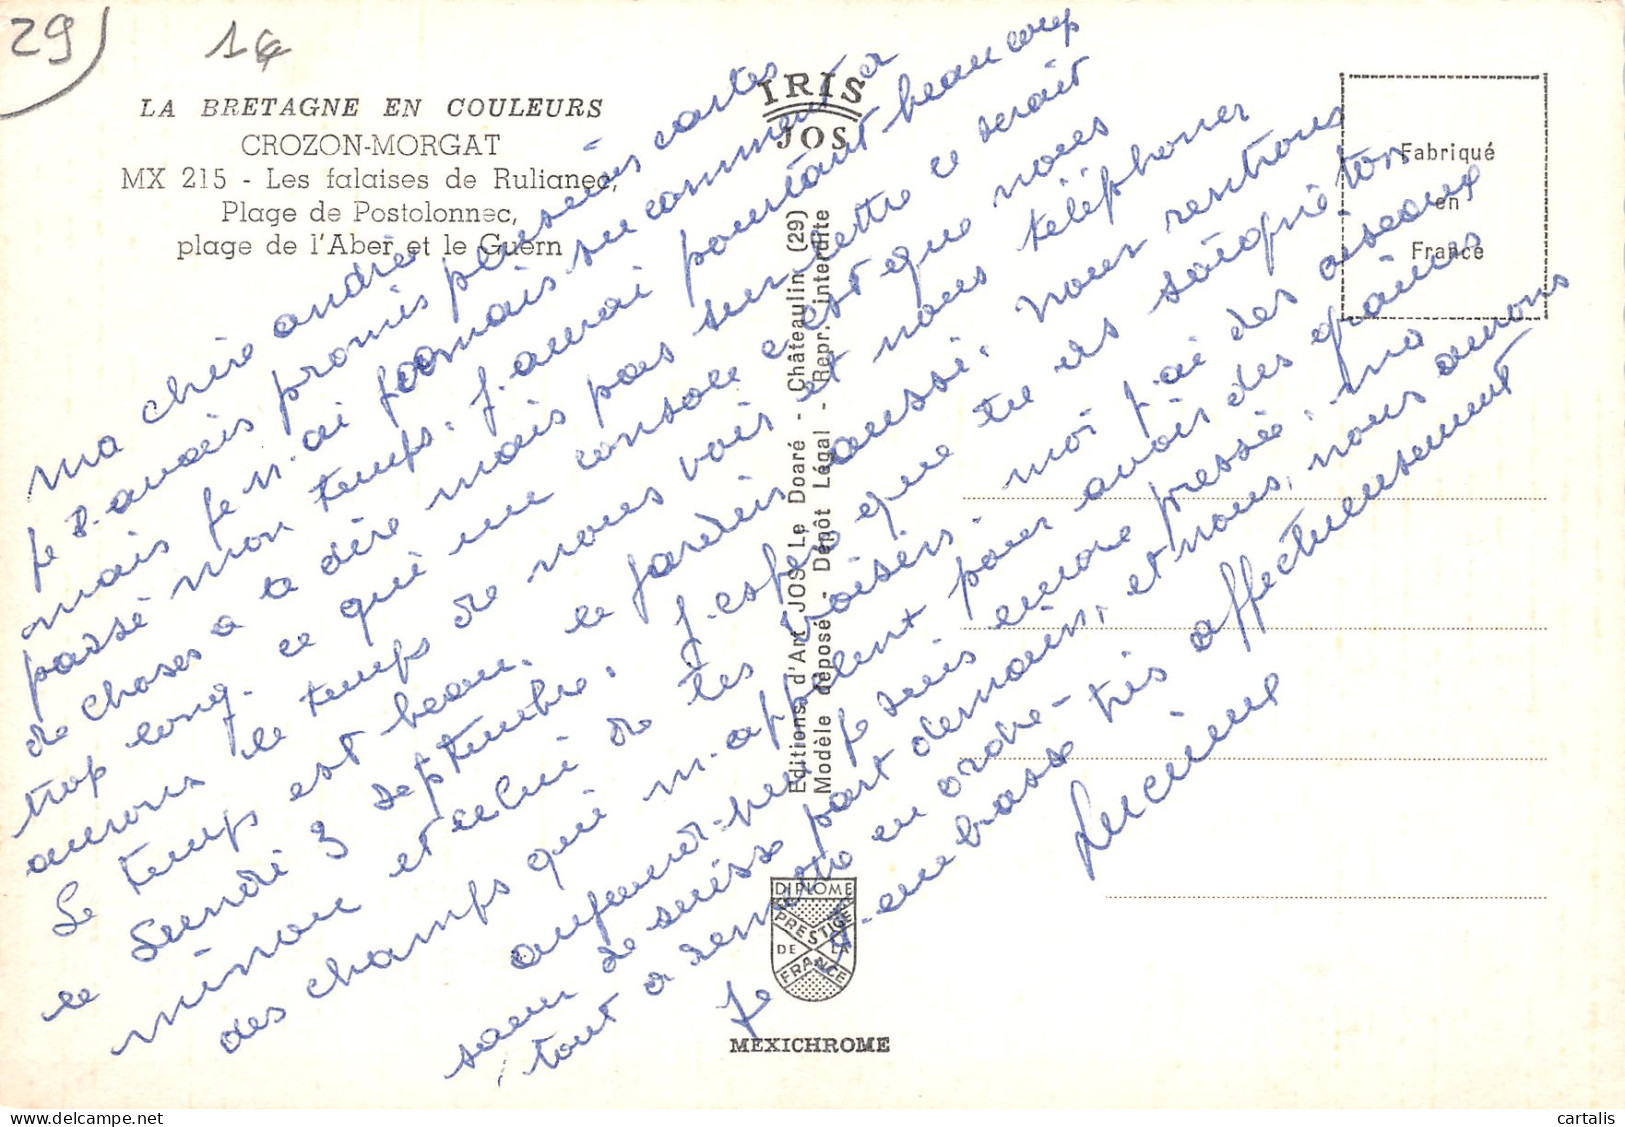 29
1€
LA BRETAGNE EN COULEURS
CROZON-MORGAT
MX 215 - Les falaises de Rulianec,
Plage de Postolonnec,
plage de l'Aber et le Guern
IRIS
JOS
Fabriqué
en
France
Editions d'Art JOS Le Doaré - Châteaulin (29)
Modèle déposé - Dépôt Légal - Repr. interdite
ma chère andrée
je t'avais promis plusieurs cartes
mais je n'ai jamais su comment a
passé mon temps. j'aurai pourtant beaucoup
de choses a te dire mais pas sur lettre ce serait
trop long. ce qui me console c'est que nous
aurons le temps de nous voir et nous téléphoner
Le temps est beau, le jardin aussi. nous rentrons
le Lundi 3 septembre. j'espère que tu as soigné ton
minou et celui de tes voisins moi j'ai des oiseaux
des champs qui m'appellent pour avoir des graines
aujourd'hui je suis encore pressée. ma
soeur de suisse part demain, et nous, nous aurons
tout a remettre en ordre.
Je t'embrasse très affectueusement
Lucienne
DIPLOME
PRESTIGE
DE LA
FRANCE
MEXICHROME
cartalis